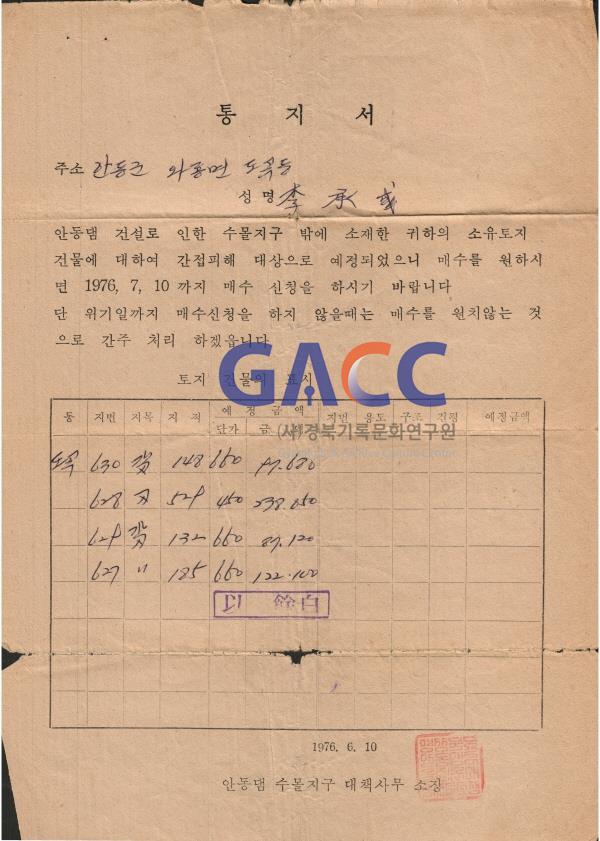 통 지 서
주소 안동군 와룡면 도목동
성 명 李 承 或
안동댐 건설로 인한 수몰지구 밖에 소재한 귀하의 소유토지
건물에 대하여 간접피해 대상으로 예정되었으니 매수를 원하시
면 1976, 7, 10 까지 매수 신청을 하시기 바랍니다
단 위기일까지 매수신청을 하지 않을때는 매수를 원치않는 것
으로 간주 처리 하겠읍니다
GACC
토지 건물의 표시
동 지번 지목 지 적 예 정 금 액 지번 용도 구조 건평 예정금액
단가 금
(사)경북기록문화연구원
도목 630 148 660 97.680
628 529 450 238.050
629 132 660 87.120
627 〃 185 660 122.100
以 餘 白
1976. 6. 10
안동댐 수몰지구 대책사무 소장